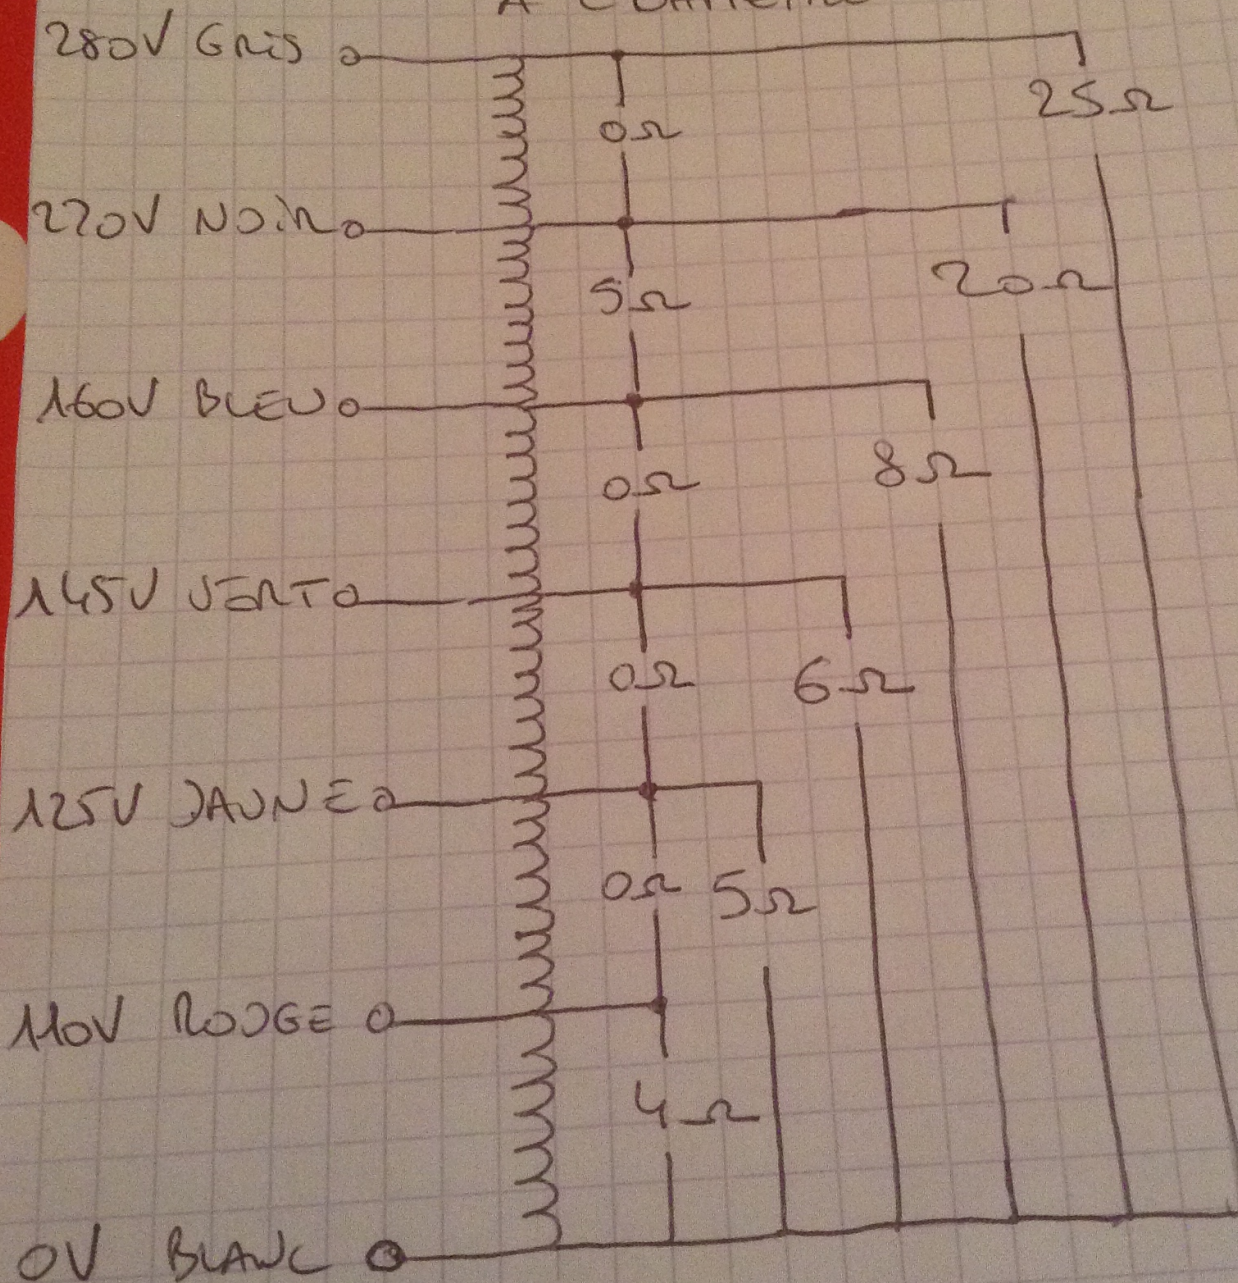 280V GRIS
25Ω
0Ω
220V NOIR
20Ω
5Ω
160V BLEU
8Ω
0Ω
145V VERT
0Ω 6Ω
125V JAUNE
0Ω 5Ω
110V ROUGE
4Ω
0V BLANC